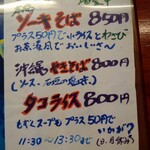 ソーキそば 850円
プラス50円でライスとわさび
お茶漬風でおいしいぞ〜
沖縄やきそば 800円
(ソース、石垣の塩味)
タコライス 800円
もずくスープもプラス50円で
いかが?
11:30〜13:30まで